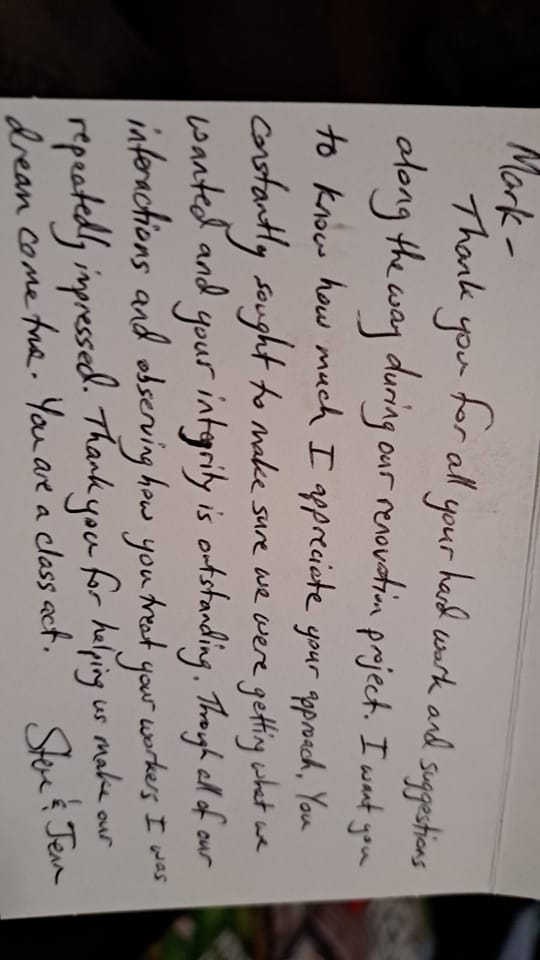 Mark -
Thank you for all your hard work and suggestions
along the way during our renovation project. I want you
to know how much I appreciate your approach. You
constantly sought to make sure we were getting what we
wanted and your integrity is outstanding. Through all of our
interactions and observing how you treat your workers I was
repeatedly impressed. Thank you for helping us make our
dream come true. You are a class act.
Steve & Jenn